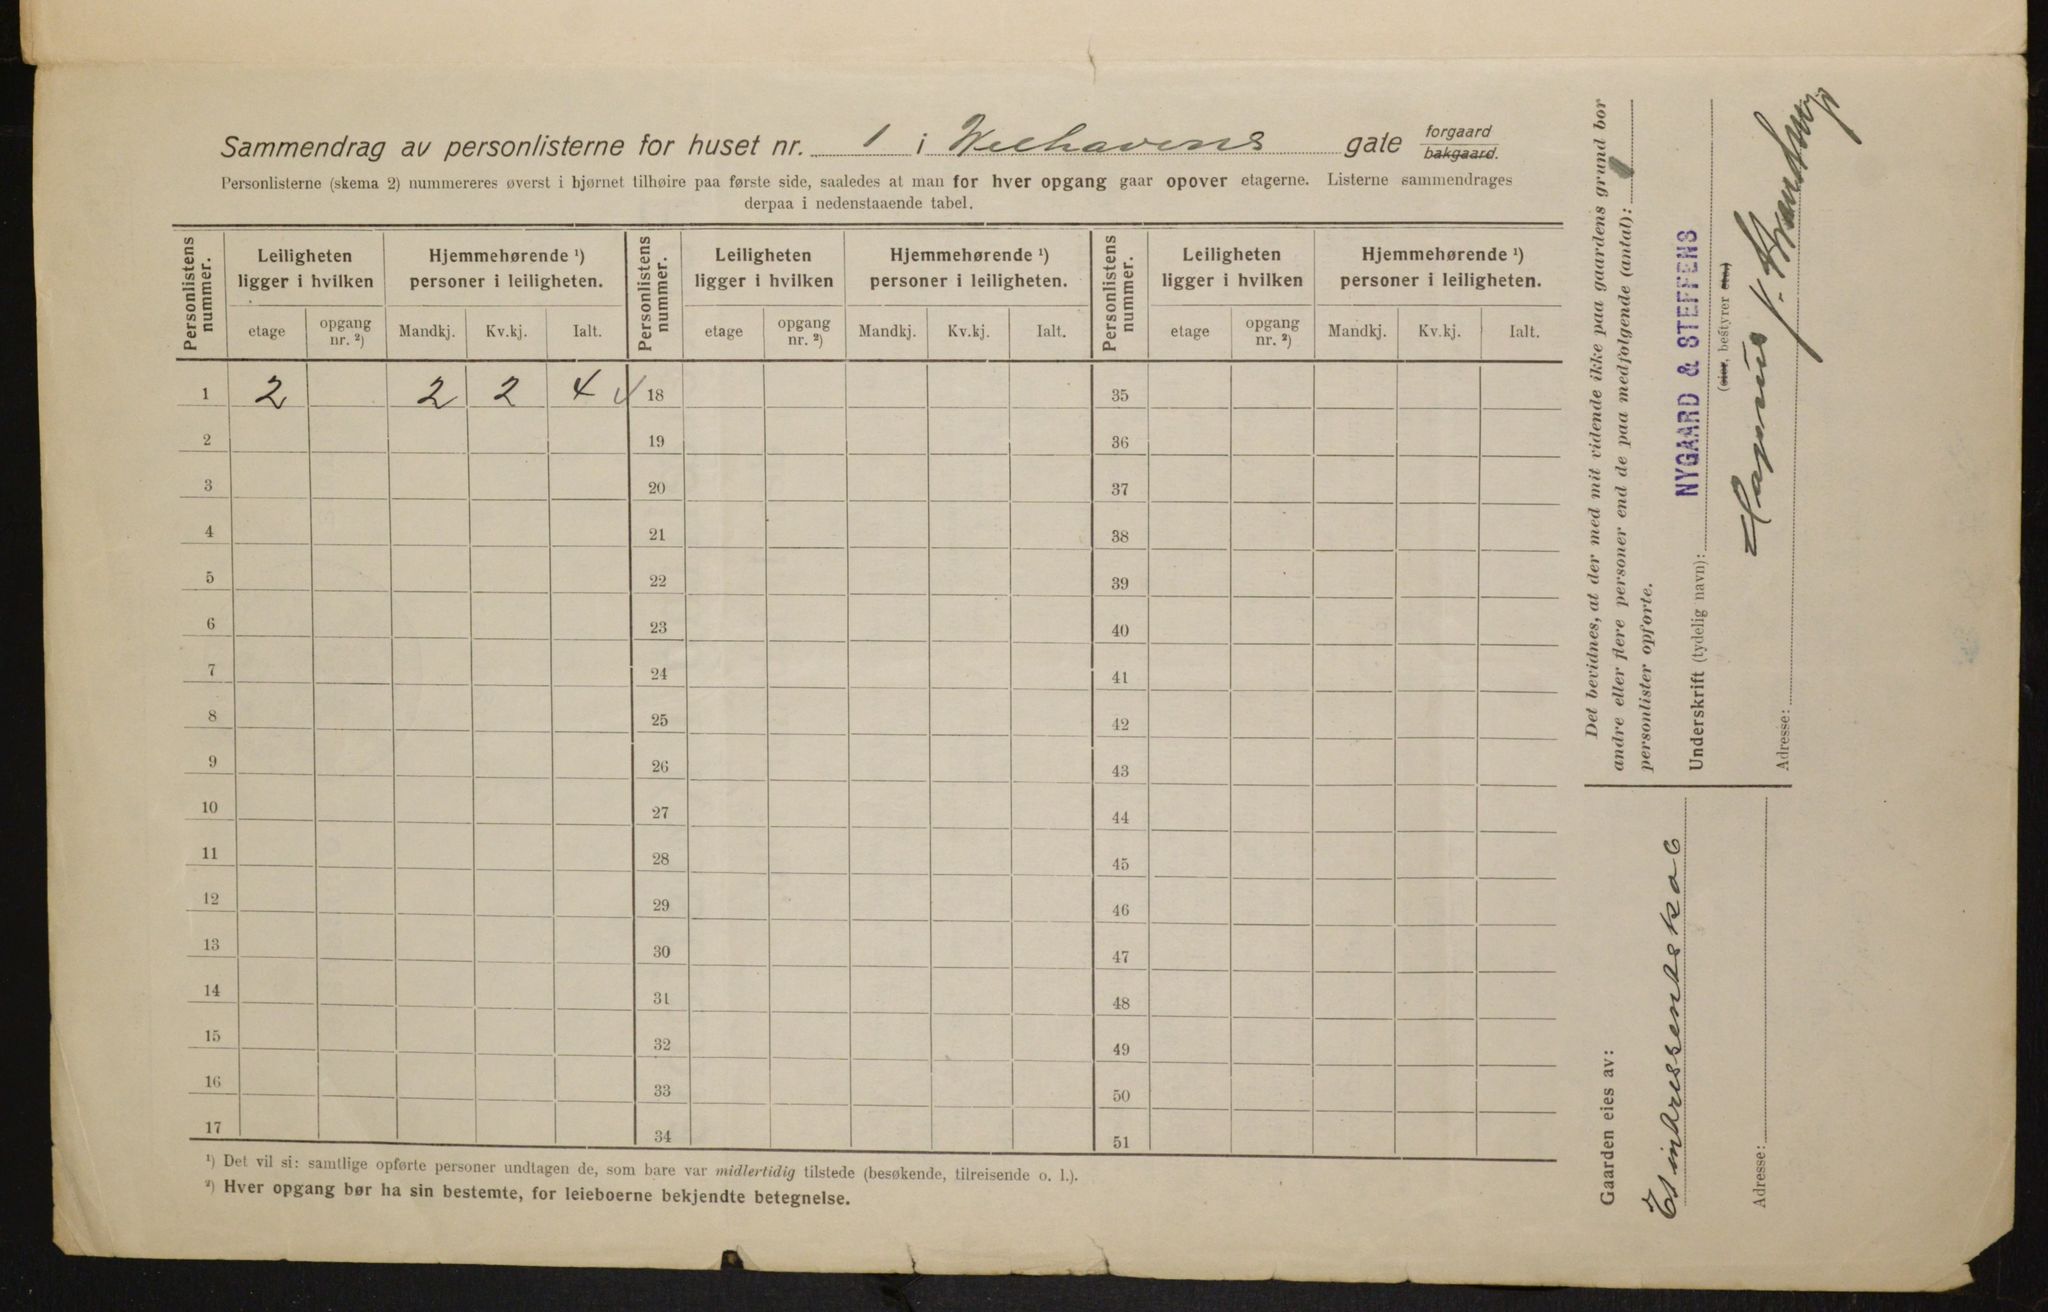 Sammendrag av personlisterne for huset nr. 1 i Welhavens gate forgaard bakgaard.
Personlisterne (skema 2) nummereres øverst i hjørnet tilhøire paa første side, saaledes at man for hver opgang gaar opover etagerne. Listerne sammendrages
derpaa i nedenstaaende tabel.
Personlistens nummer. Leiligheten ligger i hvilken Hjemmehørende ¹) personer i leiligheten. Personlistens nummer. Leiligheten ligger i hvilken Hjemmehørende ¹) personer i leiligheten. Personlistens nummer. Leiligheten ligger i hvilken Hjemmehørende ¹) personer i leiligheten.
etage opgang nr. ²) Mandkj. Kv.kj. Ialt. etage opgang nr. ²) Mandkj. Kv.kj. Ialt. etage opgang nr. ²) Mandkj. Kv.kj. Ialt.
1 2 2 2 4 4 18 35
2 19 36
3 20 37
4 21 38
5 22 39
6 23 40
7 24 41
8 25 42
9 26 43
10 27 44
11 28 45
12 29 46
13 30 47
14 31 48
15 32 49
16 33 50
17 34 51
¹) Det vil si: samtlige opførte personer undtagen de, som bare var midlertidig tilstede (besøkende, tilreisende o. l.).
²) Hver opgang bør ha sin bestemte, for leieboerne bekjendte betegnelse.
Det bevidnes, at der med mit vidende ikke paa gaardens grund bor
andre eller flere personer end de paa medfølgende (antal): 1
personlister opførte.
NYGAARD & STEFFENS
Underskrift (tydelig navn):
(eier, bestyrer etc.)
Adresse:
Gaarden eies av:
Adresse: